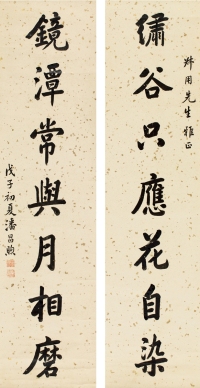 繡谷只應花自染
用先生雅正
鏡潭常與月相磨
戊子初夏潘昌煦